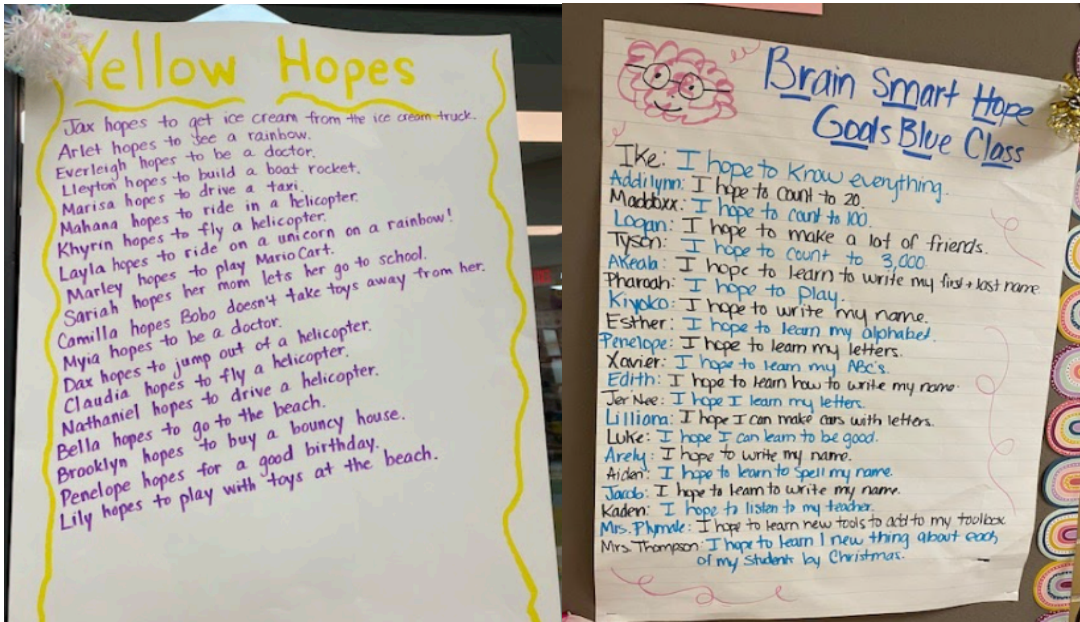 Yellow Hopes
Jax hopes to get ice cream from the ice cream truck.
Arlet hopes to see a rainbow.
Everleigh hopes to be a doctor.
Lleyton hopes to build a boat rocket.
Marisa hopes to drive a taxi.
Mahana hopes to ride in a helicopter.
Khyrin hopes to fly a helicopter.
Layla hopes to ride on a unicorn on a rainbow!
Marley hopes to play Mario Cart.
Sariah hopes her mom lets her go to school.
Camilla hopes Bobo doesn't take toys away from her.
Myia hopes to be a doctor.
Dax hopes to jump out of a helicopter.
Claudia hopes to fly a helicopter.
Nathaniel hopes to drive a helicopter.
Bella hopes to go to the beach.
Brooklyn hopes to buy a bouncy house.
Penelope hopes for a good birthday.
Lily hopes to play with toys at the beach.
Brain Smart Hope
Goals Blue Class
Ike: I hope to know everything.
Addilynn: I hope to count to 20.
Maddoxx: I hope to count to 100.
Logan: I hope to make a lot of friends.
Tyson: I hope to count to 3,000.
Akeala: I hope to learn to write my first + last name
Pharoah: I hope to play.
Kiyoko: I hope to write my name.
Esther: I hope to learn my alphabet.
Penelope: I hope to learn my letters.
Xavier: I hope to learn my ABC's.
Edith: I hope to learn how to write my name.
Jer'Nee: I hope I learn my letters.
Lilliana: I hope I can make cars with letters.
Luke: I hope I can learn to be good.
Arely: I hope to write my name.
Aiden: I hope to learn to spell my name.
Jacob: I hope to learn to write my name.
Kaden: I hope to listen to my teacher.
Mrs. Plymale: I hope to learn new tools to add to my toolbox
Mrs. Thompson: I hope to learn 1 new thing about each
of my students by Christmas.